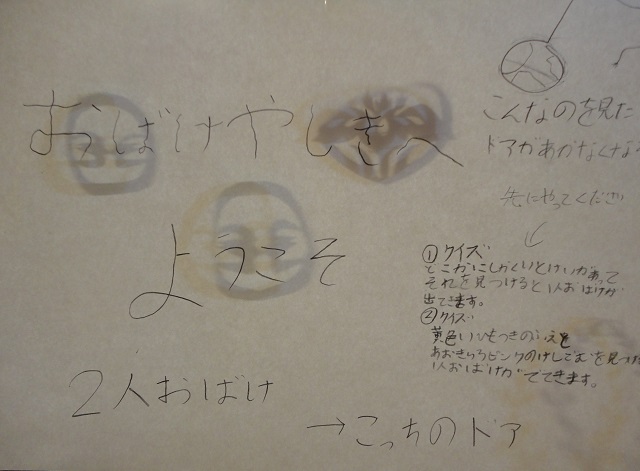 おばけやしきへ
ようこそ
2人おばけ
→こっちのドア
こんなのを見た
ドアがあかなくな
先にやってくださ
①クイズ
とこかにしかくいとけいがあって
それを見つけると1人おばけが
出てきます。
②クイズ
黄色いひもつきのふえを
あおきいろピンクのけしごむを見つけ
1人おばけがでてきます。